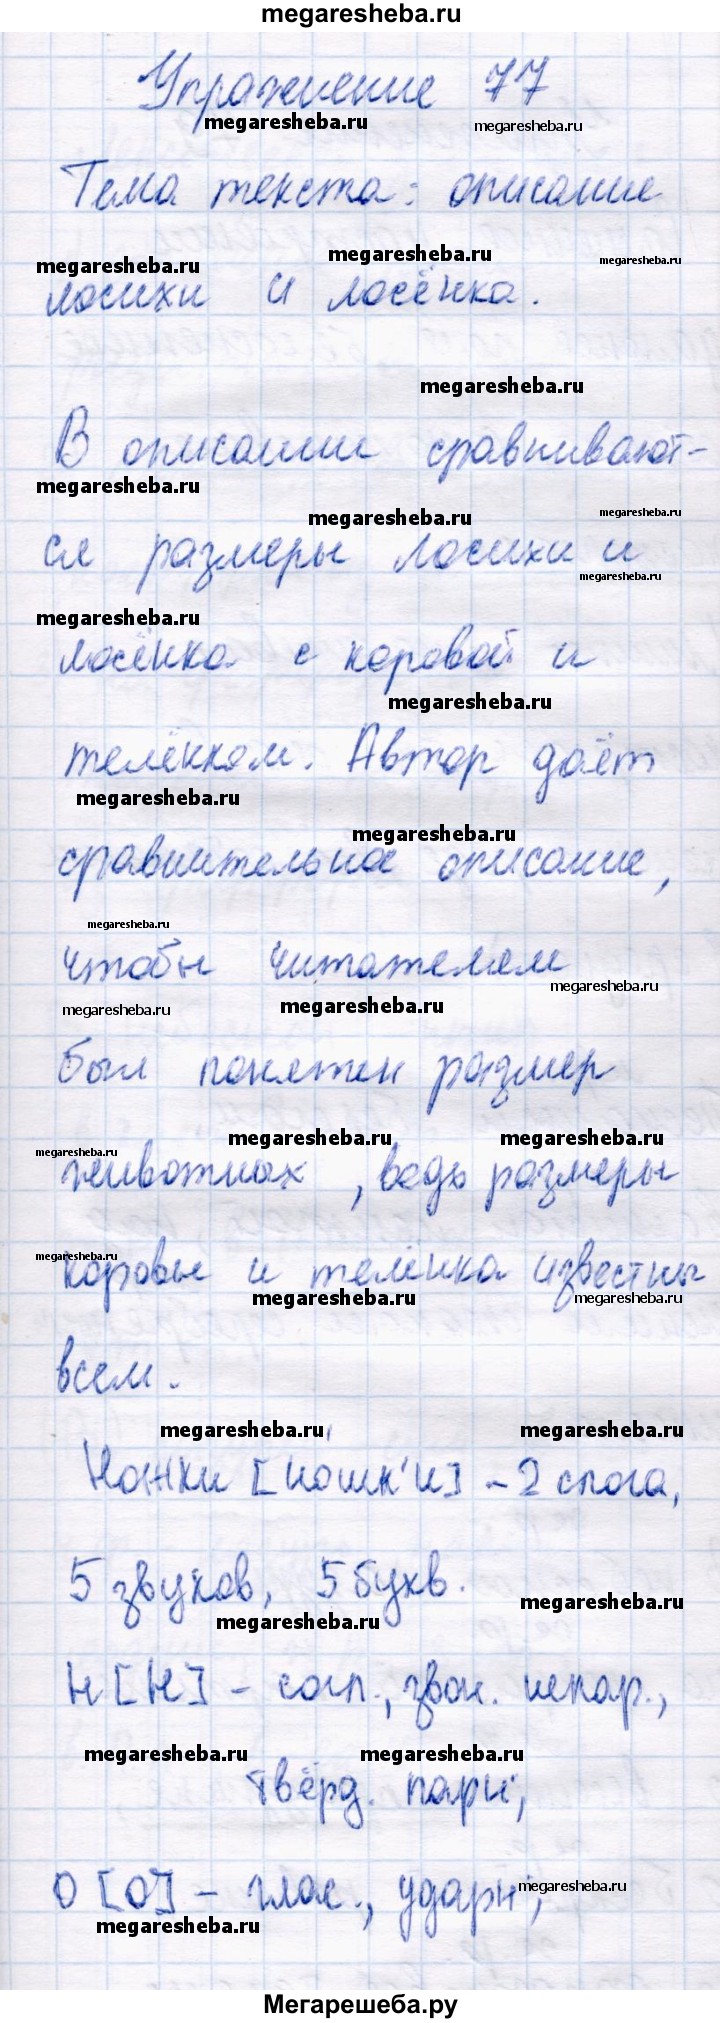 megaresheba.ru
Упражнение 77
megaresheba.ru
megaresheba.ru
Тема текста: описание
megaresheba.ru
megaresheba.ru
megaresheba.ru
лосихи и лосёнка.
megaresheba.ru
В описании сравнивают-
megaresheba.ru
megaresheba.ru
megaresheba.ru
ся размеры лосихи и
megaresheba.ru
megaresheba.ru
лосёнка с коровой и
megaresheba.ru
телёнком. Автор даёт
megaresheba.ru
megaresheba.ru
сравнительное описание,
megaresheba.ru
чтобы читателям
megaresheba.ru
megaresheba.ru
megaresheba.ru
был понятен размер
megaresheba.ru
megaresheba.ru
megaresheba.ru
животных, ведь размеры
megaresheba.ru
коровы и телёнка известны
megaresheba.ru
megaresheba.ru
всем.
megaresheba.ru
megaresheba.ru
Ножки [ношк'и] - 2 слога,
5 звуков, 5 букв.
megaresheba.ru
megaresheba.ru
н [н] - согл., звон. непар.,
megaresheba.ru
megaresheba.ru
твёрд. парн.,
о [о] - глас., ударн.,
megaresheba.ru
megaresheba.ru
Мегарешеба.ру